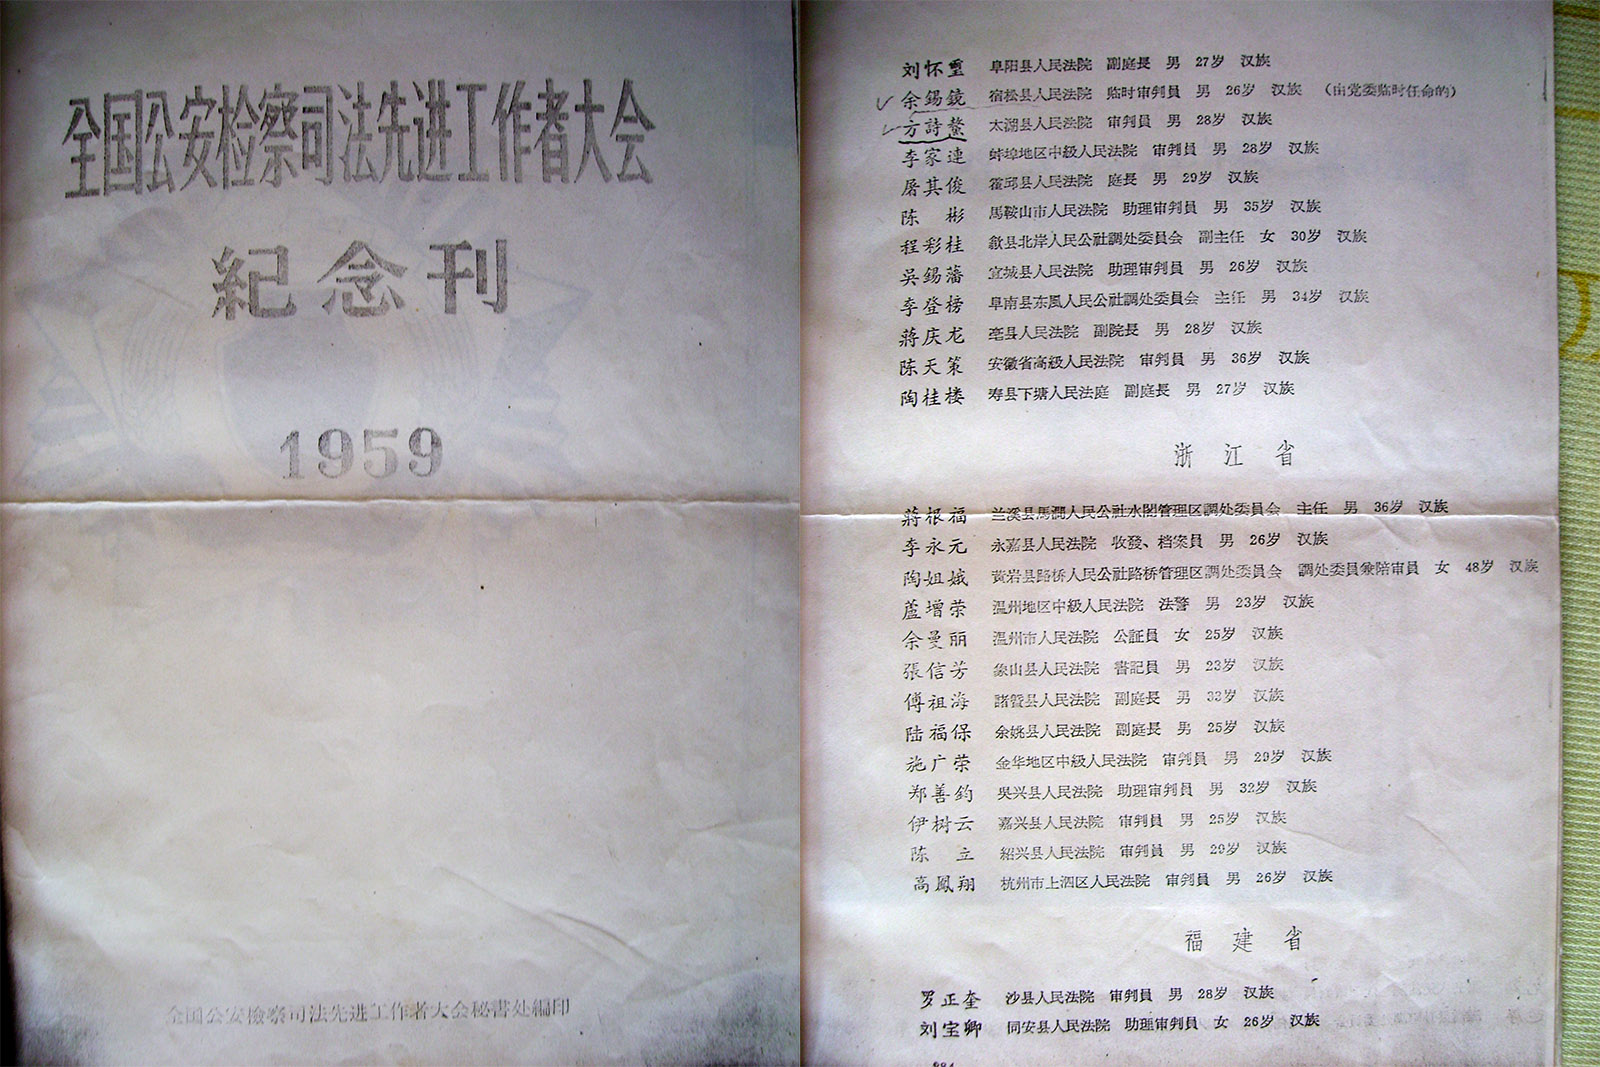 全国公安检察司法先进工作者大会
紀念刊
1959
全国公安檢察司法先进工作者大会秘書处編印
刘怀璽 阜阳县人民法院 副庭長 男 27岁 汉族
余錫鏡 宿松县人民法院 临时审判員 男 26岁 汉族 (由党委临时任命的)
方詩鰲 太湖县人民法院 审判員 男 28岁 汉族
李家連 蚌埠地区中級人民法院 审判員 男 28岁 汉族
屠其俊 霍邱县人民法院 庭長 男 29岁 汉族
陈彬 馬鞍山市人民法院 助理审判員 男 35岁 汉族
程彩桂 歙县北岸人民公社調处委員会 副主任 女 30岁 汉族
吳錫藩 宣城县人民法院 助理审判員 男 26岁 汉族
李登榜 阜南县东風人民公社調处委員会 主任 男 34岁 汉族
蔣庆龙 亳县人民法院 副院長 男 28岁 汉族
陈天策 安徽省高級人民法院 审判員 男 36岁 汉族
陶桂楼 寿县下塘人民法庭 副庭長 男 27岁 汉族
浙江省
蔣根福 兰溪县馬澗人民公社水閣管理区調处委員会 主任 男 36岁 汉族
李永元 永嘉县人民法院 收發、档案員 男 26岁 汉族
陶姐娥 黄岩县路桥人民公社路桥管理区調处委員会 調处委員兼陪审員 女 48岁 汉族
蘆增荣 温州地区中級人民法院 法警 男 23岁 汉族
余曼丽 温州市人民法院 公証員 女 25岁 汉族
張信芳 象山县人民法院 書記員 男 23岁 汉族
傅祖海 諸暨县人民法院 副庭長 男 33岁 汉族
陆福保 余姚县人民法院 副庭長 男 25岁 汉族
施广荣 金华地区中級人民法院 审判員 男 29岁 汉族
郑善鈞 吳兴县人民法院 助理审判員 男 32岁 汉族
伊树云 嘉兴县人民法院 审判員 男 25岁 汉族
陈立 紹兴县人民法院 审判員 男 29岁 汉族
高鳳翔 杭州市上泗区人民法院 审判員 男 26岁 汉族
福建省
罗正奎 沙县人民法院 审判員 男 28岁 汉族
刘宝卿 同安县人民法院 助理审判員 女 26岁 汉族